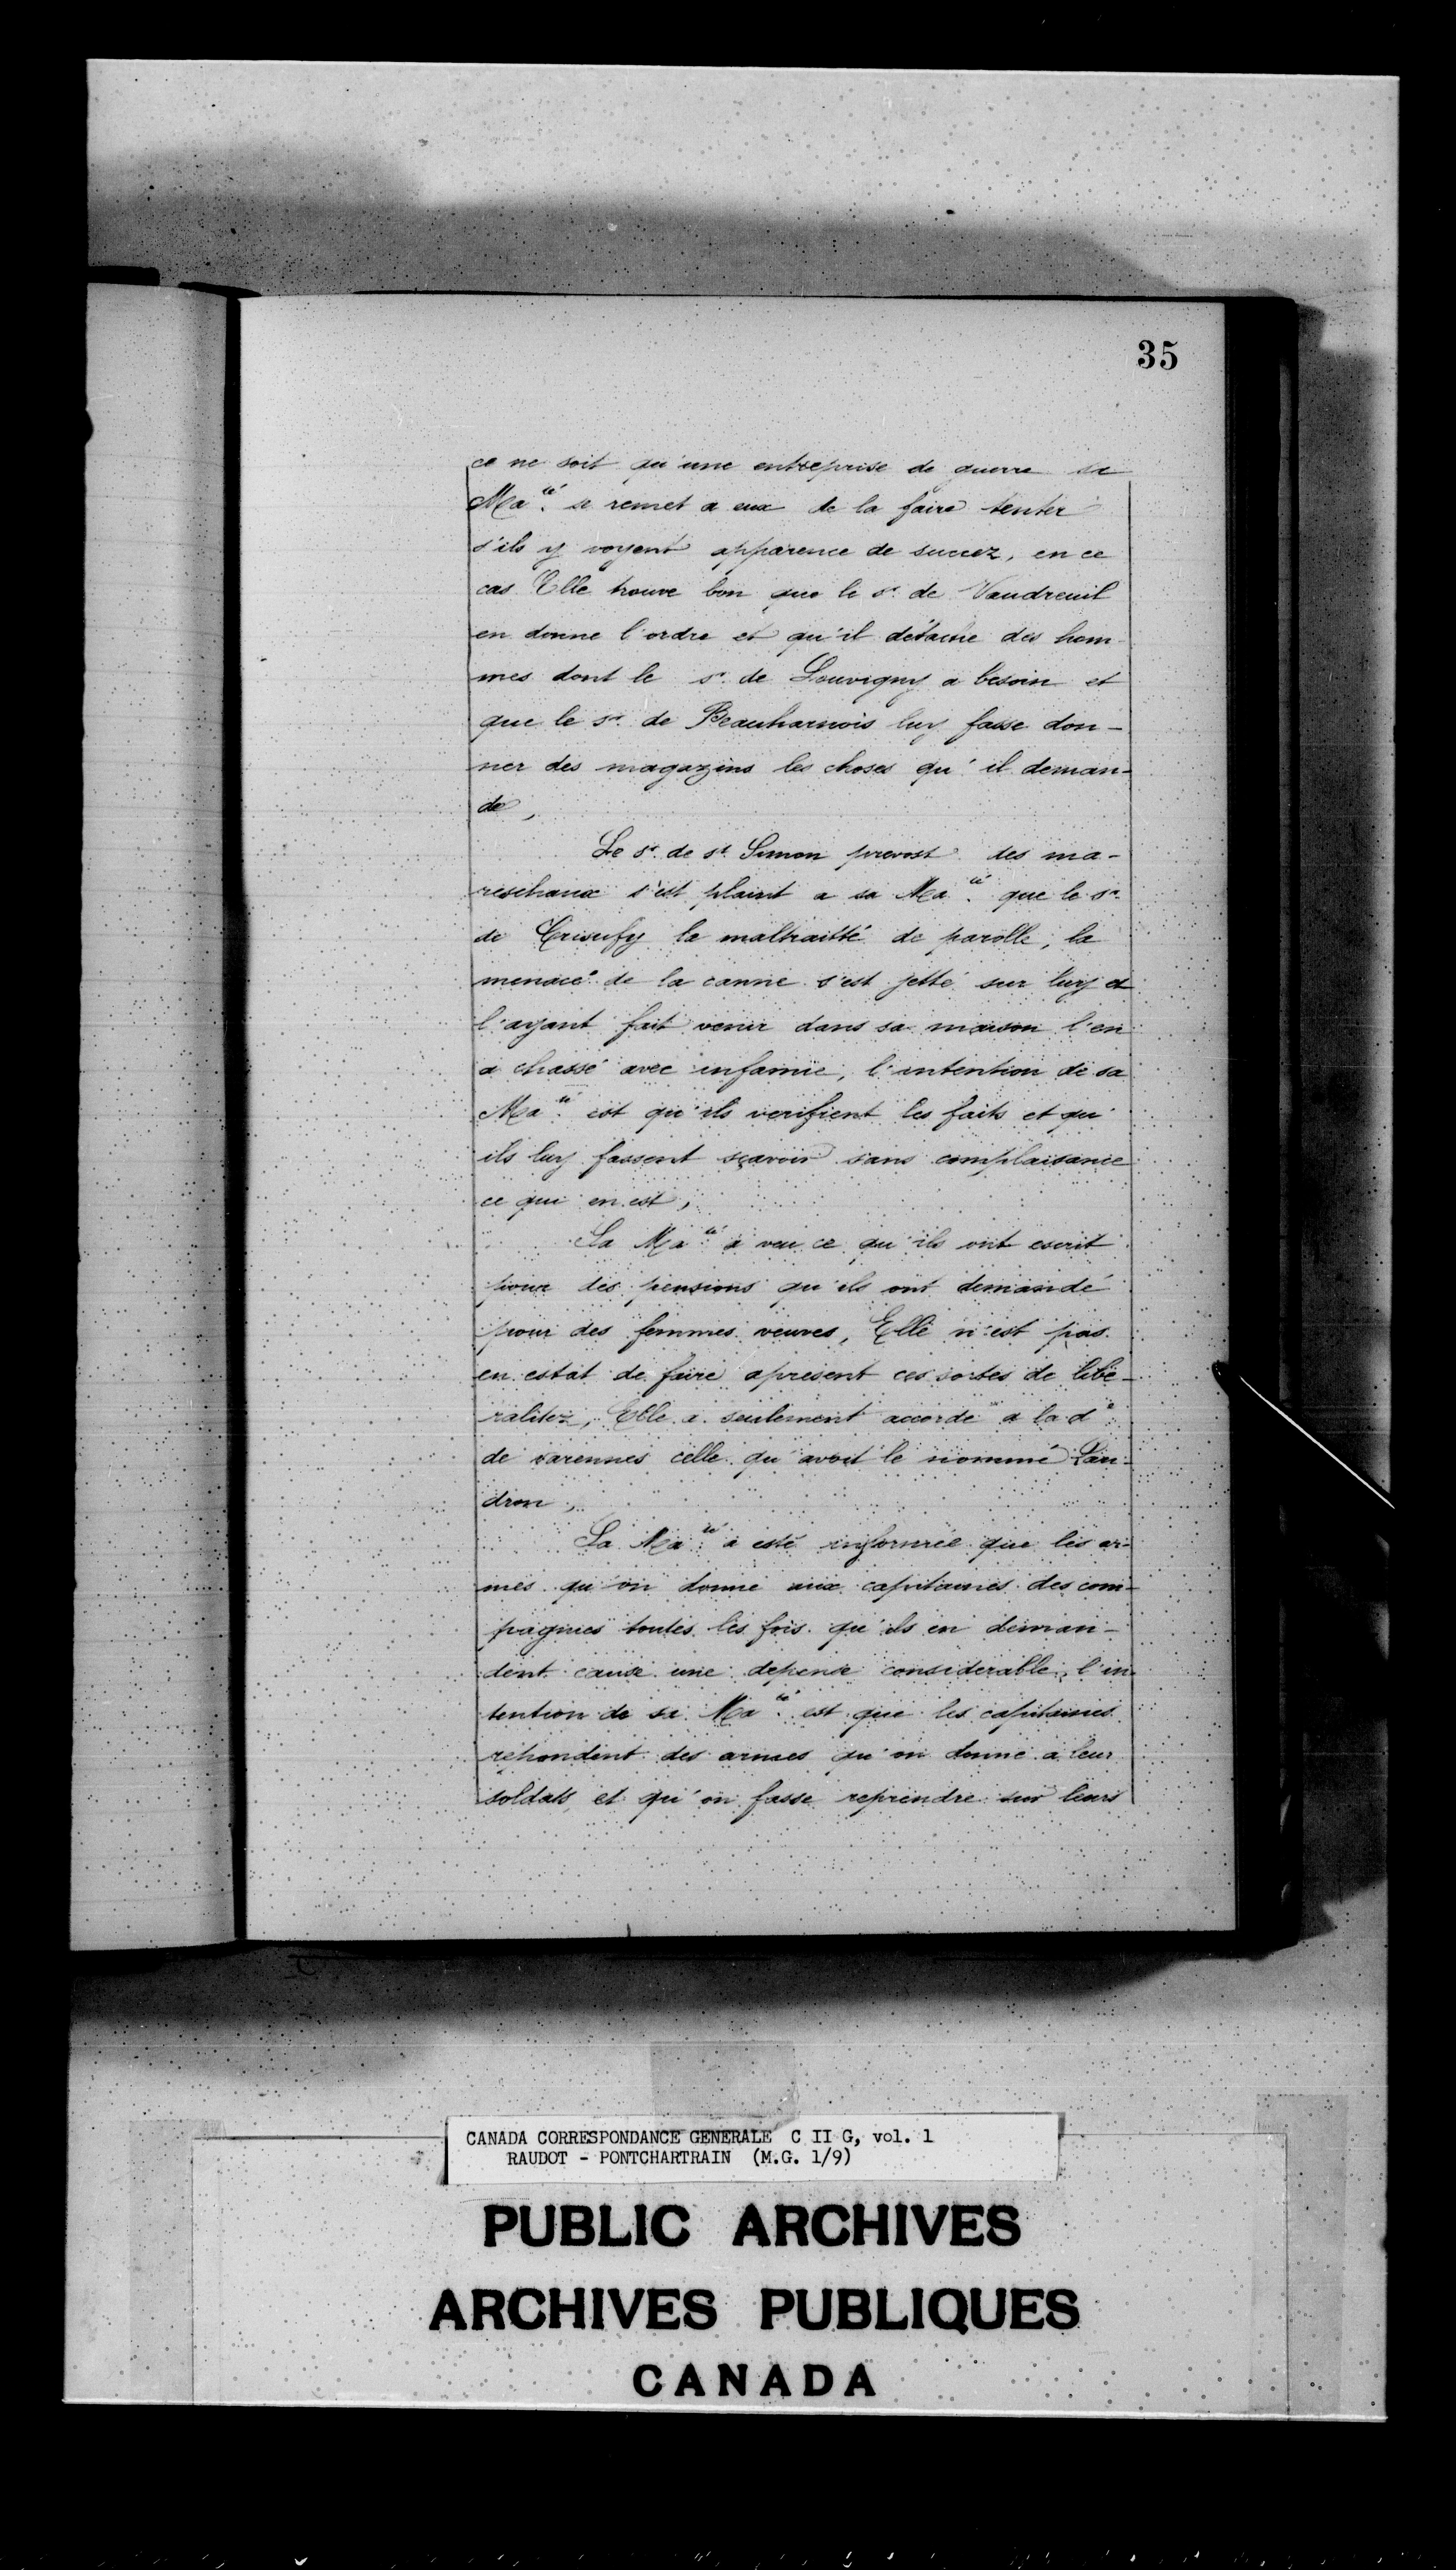 35
ce ne soit qu'une entreprise de guerre sa
Ma.té se remet a eux de la faire tenter
s'ils y voyent apparence de succez, en ce
cas Elle trouve bon que le sr. de Vaudreuil
en donne l'ordre et qu'il détache des hom-
mes dont le sr. de Louvigny a besoin et
que le sr. de Beauharnois luy fasse don-
ner des magazins les choses qu'il deman-
de,
Le sr. de st. Simon prevost des ma-
reschaux s'est plaint a sa Ma.té que le sr.
de Crisafy la maltraitté de parolle, la
menacé de la canne s'est jetté sur luy et
l'ayant fait venir dans sa maison l'en
a chassé avec infamie, l'intention de sa
Ma.té est qu'ils verifient les faits et qu'
ils luy fassent sçavoir sans complaisance
ce qui en est,
Sa Ma.té a veu ce qu'ils ont escrit
pour des pensions qu'ils ont demandé
pour des femmes veuves, Elle n'est pas
en estat de faire apresent ces sortes de libe-
ralitez, Elle a seulement accordé a la de.
de varennes celle qu'avoit le nommé Lan-
dron,
Sa Ma.té a esté informée que les ar-
mes qu'on donne aux capitaines des com-
pagnies toutes les fois qu'ils en deman-
dent cause une depense considerable, l'in-
tention de sa Ma.té est que les capitaines
repondent des armes qu'on donne a leur
soldats, et qu'on fasse reprendre sur leurs
CANADA CORRESPONDANCE GENERALE C II G, vol. 1
RAUDOT - PONTCHARTRAIN (M.G. 1/9)
PUBLIC ARCHIVES
ARCHIVES PUBLIQUES
CANADA